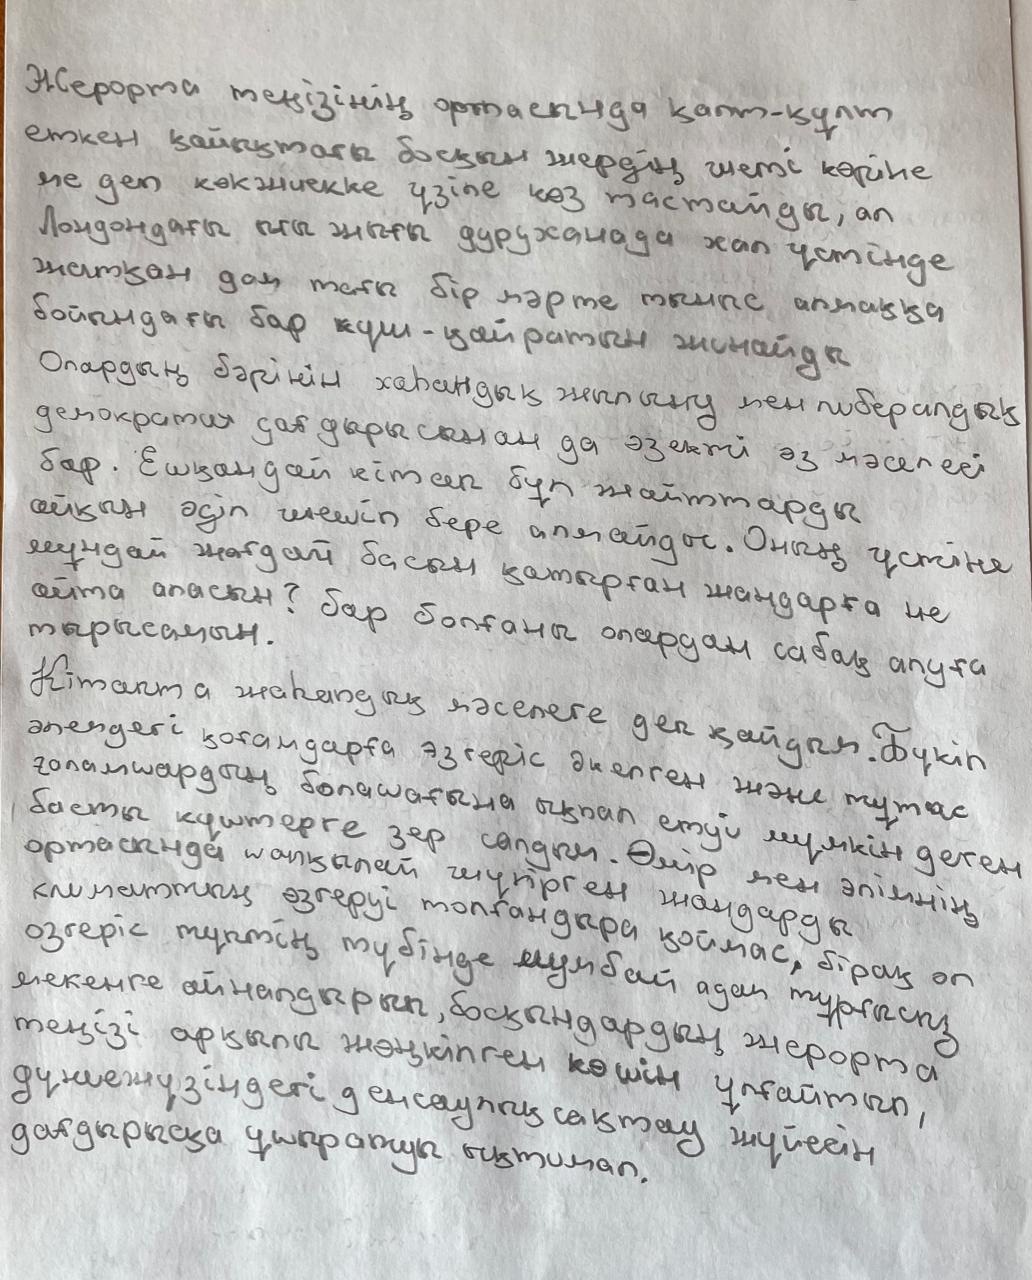 Жерорта теңізінің ортасында қалт-құлт
еткен қайықтағы босқын жердің шеті көріне
ме деп көкжиекке үзіле көз тастайды, ал
Лондондағы ығы жығы дуруханада хал үстінде
жатқан дал тағы бір мәрте тыныс алмаққа
бойындағы бар күш-қайратын жинайды
Олардың бәрінін хаһандық жылыну мен либералдық
демократия дағдырысынан да әзекті әз мәселесі
бар. Ешқандай кітап бұл жайттарды
айқын әдіп шешіп бере алмайды. Оның үстіне
мұндай жағдай басын қатырған жандарға не
айта аласын? бар болғаны олардан сабақ алуға
тырысамын.
Кітапта жаһандық мәселеге деп қайдым. Бүкіл
әлемдегі қоғамдарға әзгеріс әкелген және тұтас
ғоламшардың болашағына ықпал етуі мүмкін деген
басты күштерге зер салдым. Өмір мен әлімнің
ортасында шапқылай жүгірген жандарды
климаттың өзгеруі толғандыра қоймас, бірақ ол
озгеріс түптің түбінде мұмбай адам тұрғысыз
мекенге айналдырып, босқындардың жерорта
теңізі арқылы жөңкілген көшін ұлғайтып,
дүниежүзіндегі денсаулық сақтау жүйесін
дағдырысқа ұшыратуы ықтимал.